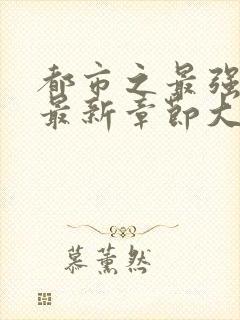 都市之最强
最新章節大
慕薰然